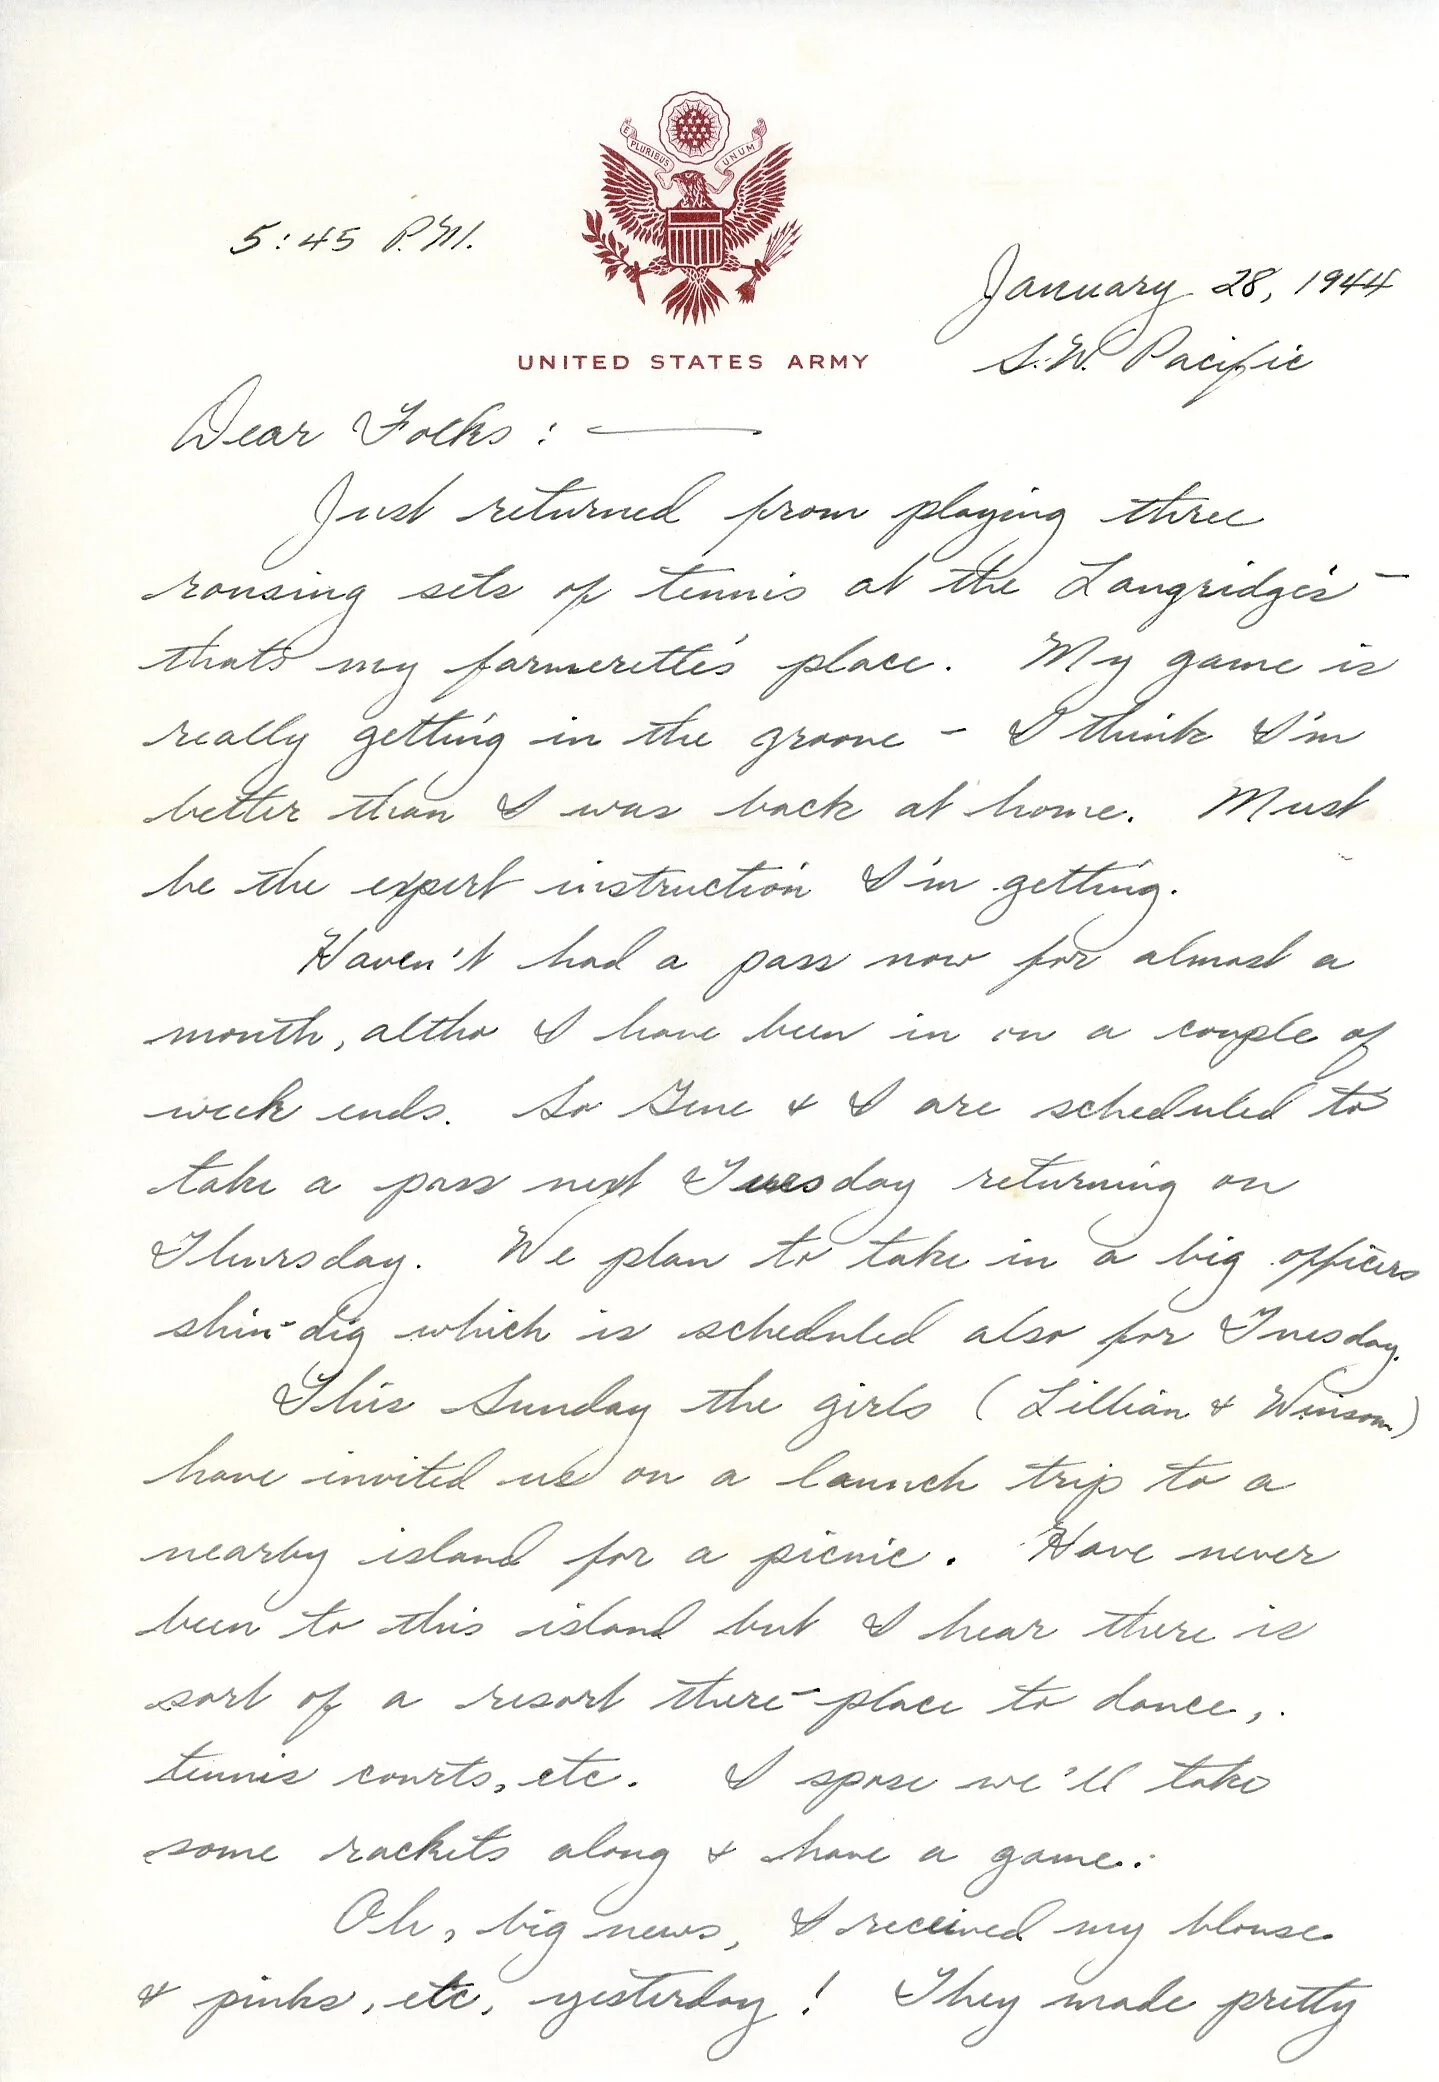 E PLURIBUS UNUM
5:45 P.M.
UNITED STATES ARMY
January 28, 1944
S.W. Pacific
Dear Folks: —
Just returned from playing three
rousing sets of tennis at the Langridge's –
that's my farmerette's place. My game is
really getting in the groove – I think I'm
better than I was back at home. Must
be the expert instruction I'm getting.
Haven't had a pass now for almost a
month, altho I have been in on a couple of
week ends. So Gene & I are scheduled to
take a pass next Tuesday returning on
Thursday. We plan to take in a big officers
shin-dig which is scheduled also for Tuesday.
This Sunday the girls (Lillian & Winsom)
have invited us on a launch trip to a
nearby island for a picnic. Have never
been to this island but I hear there is
sort of a resort there – place to dance,
tennis courts, etc. I spose we'll take
some rackets along & have a game.
Oh, big news, I received my blouse
& pinks, etc, yesterday! They made pretty